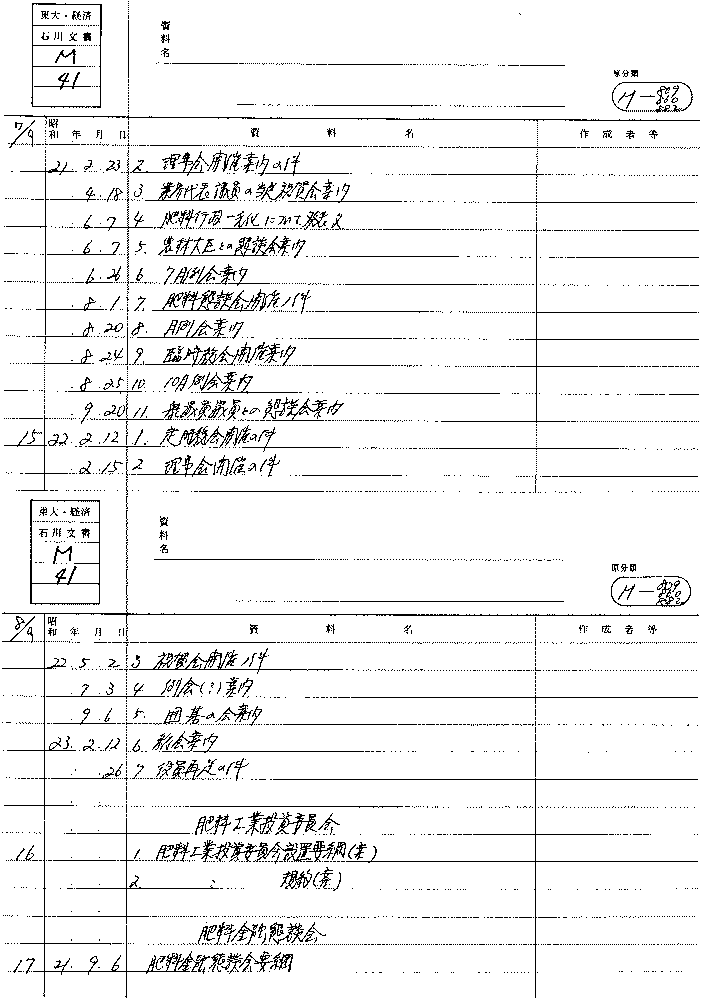 東大・経済
石川文書
M
41
資料名
原分類
M—
7/9 昭和 年 月 日 資 料 名 作成者等
21. 2. 23 2. 理事会開催案内の件
4. 18 3. 業者代表議員の当選祝賀会案内
6. 7 4. 肥料行政一元化について発表文
6. 7 5. 農林大臣との懇談会案内
6. 26 6. 7月例会案内
8. 1 7. 肥料懇談会開催ノ件
8. 20 8. 月例会案内
8. 24 9. 臨時総会開催案内
8. 25 10. 10月例会案内
9. 20 11. 議員との懇談会案内
15 22. 2. 12 1. 定時総会開催の件
2. 15 2. 理事会開催の件
東大・経済
石川文書
M
41
資料名
原分類
M—
8/9 昭和 年 月 日 資 料 名 作成者等
22. 5. 2 3. 祝賀会開催ノ件
7. 3 4. 例会(?)案内
9. 6 5. 囲碁の会案内
23. 2. 12 6. 総会案内
. 26 7. 役員再選の件
肥料工業投資委員会
16 1. 肥料工業投資委員会設置要綱(案)
2. 〃 規約(案)
肥料金融懇談会
17 21. 9. 6 肥料金融懇談会要綱